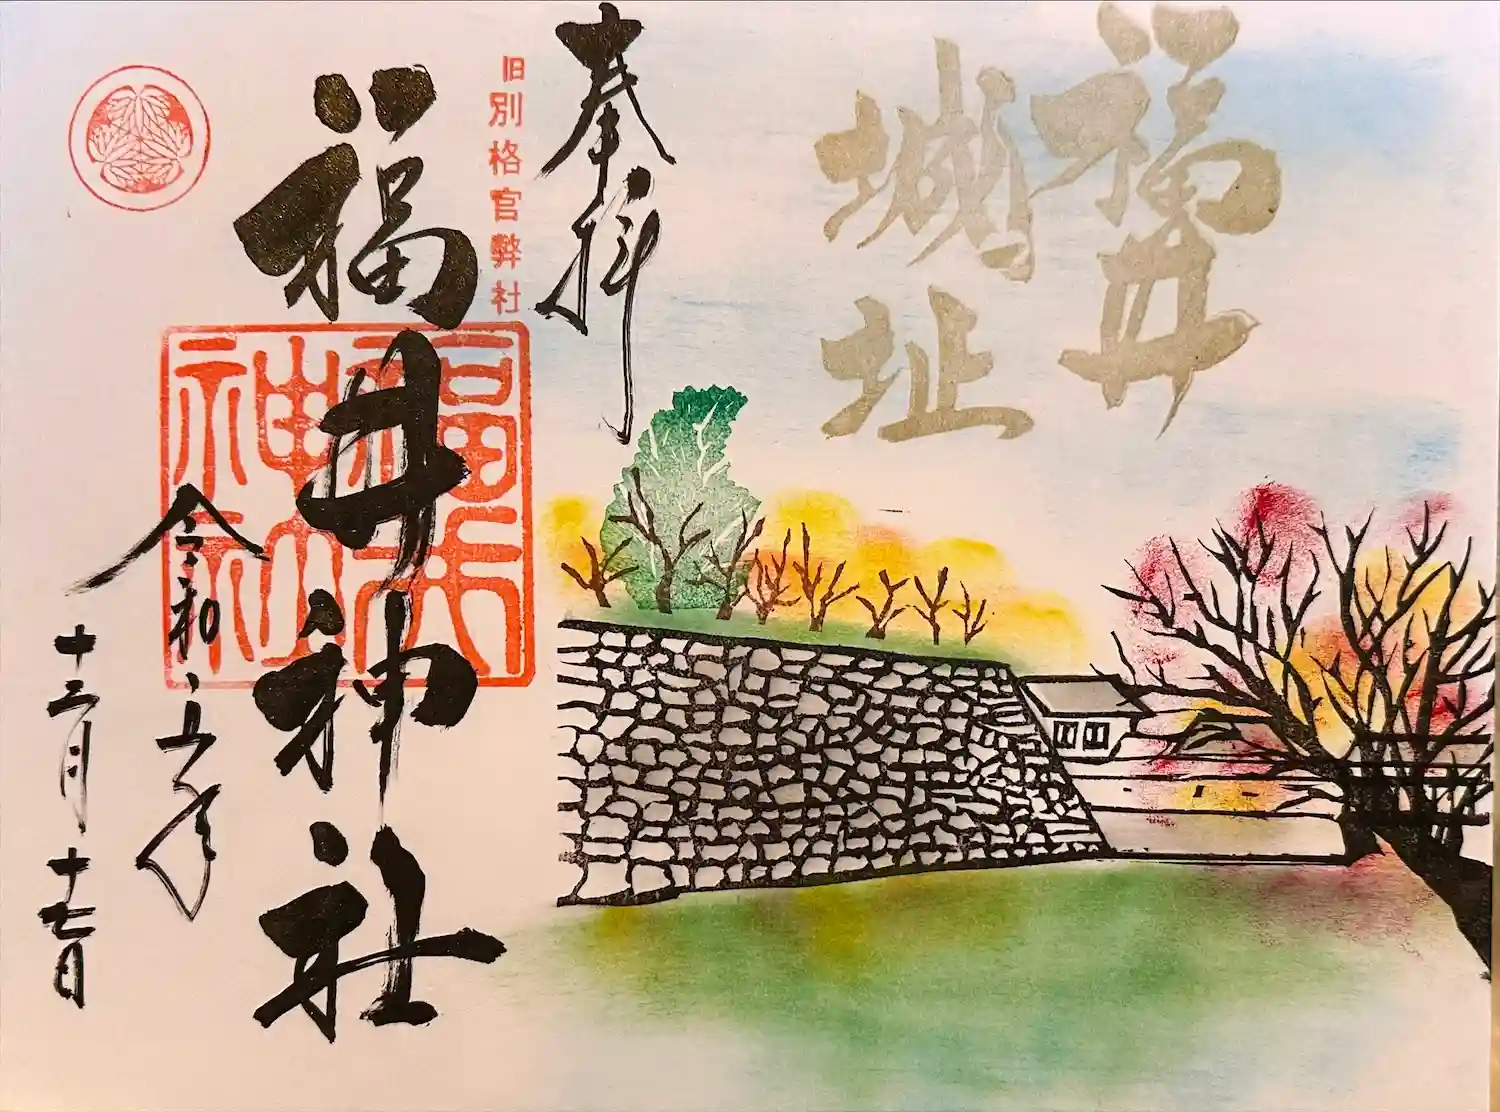 福井
城址
奉拝
旧別格官弊社
福井神社
福井
神社
令和五年
十二月十七日